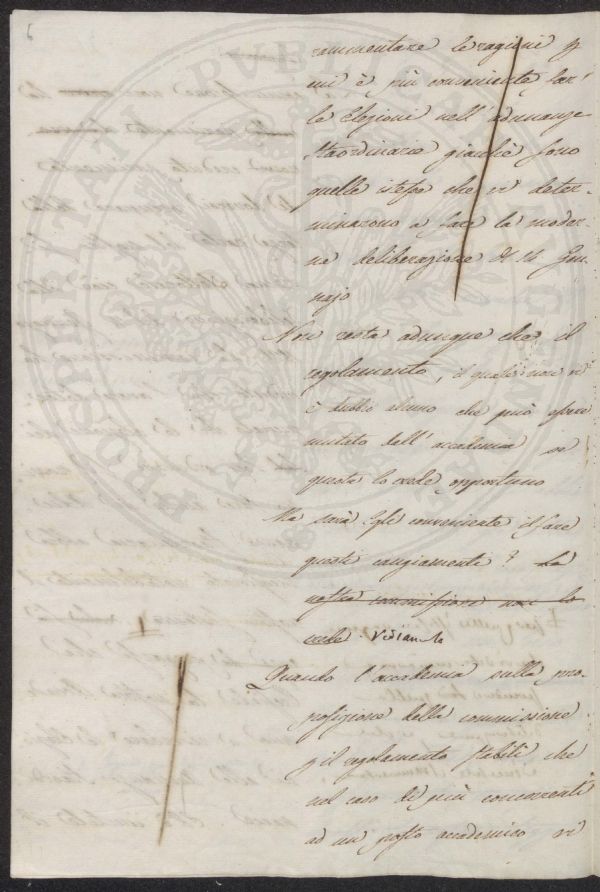 6
rammentare le ragioni p
cui è più conveniente far
le Elezioni nell'adunanze
straordinarie giacchè sono
quelle istesse che vi deter-
minarono a fare la moder-
na deliberazione di 16 Gen-
najo
Non resta adunque che il
regolamento, il quale non vi
è dubbio alcuno che può essere
mutato dall'accademia se
questa lo crede opportuno
Ma sarà Egli conveniente il fare
questi cangiamenti? La
nostra commissione non lo
crede. Vediamolo
Quando l'accademia sulla pro-
posizione della commissione
p il regolamento stabilì che
nel caso di più concorrenti
ad un posto accademico vi
PROSPERITATI PVBLICAE AVGENDAE